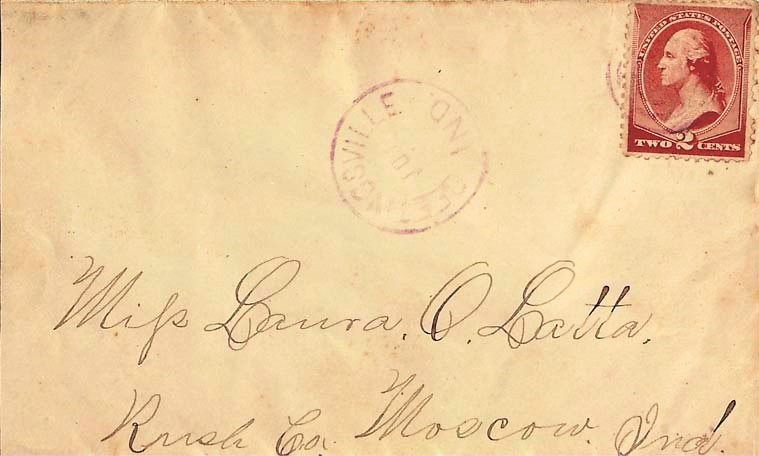 UNITED STATES POSTAGE
TWO 2 CENTS
GEETINGSVILLE IND
Miss Laura. O. Latta,
Rush Co. Moscow. Ind.